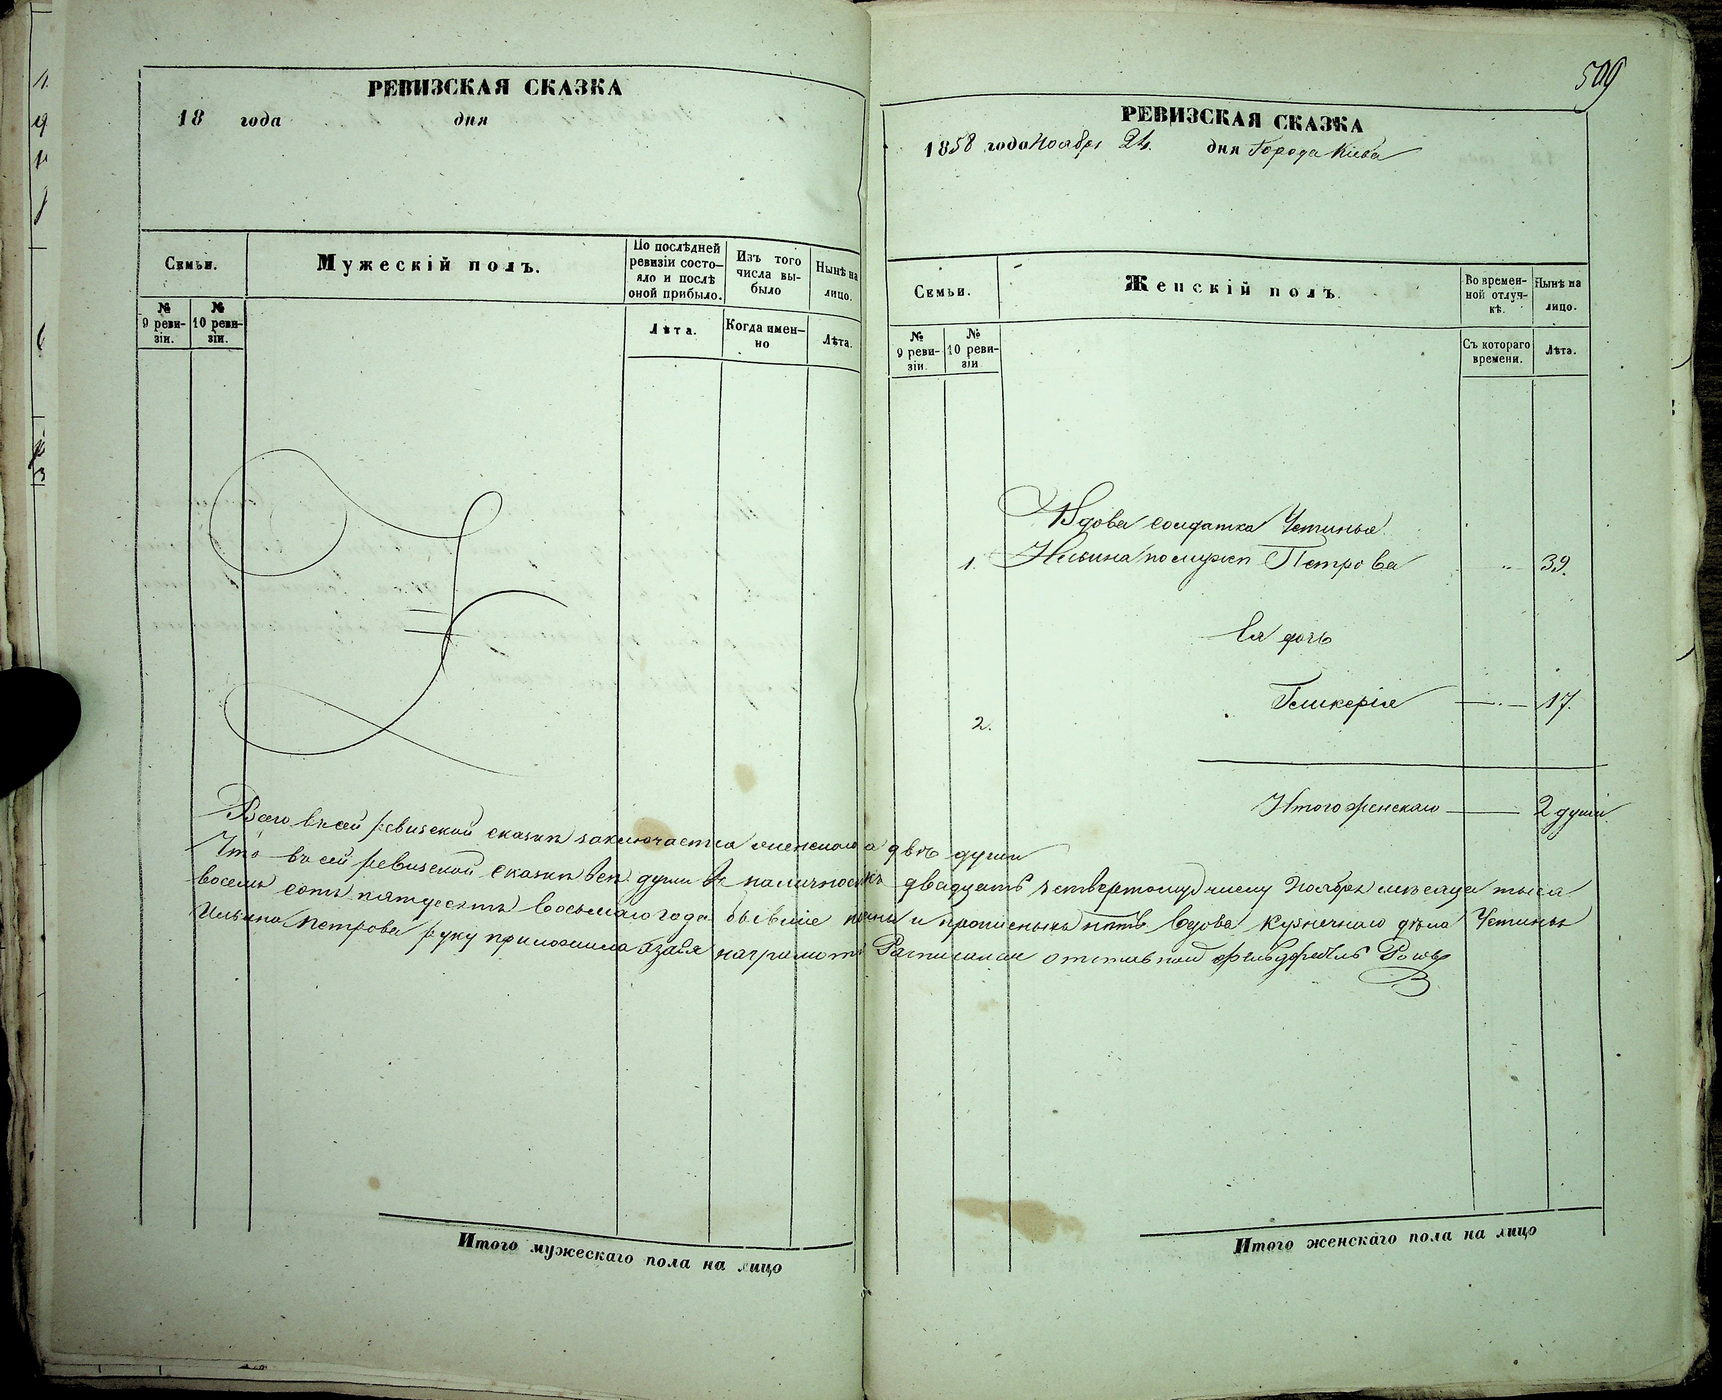 РЕВИЗСКАЯ СКАЗКА
18 года дня
Семьи.
Мужескій полъ.
По послѣдней ревизіи состояло и послѣ оной прибыло.
Изъ того числа выбыло
Нынѣ на лицо.
№ 9 ревизіи.
№ 10 ревизіи.
Лѣта.
Когда именно
Лѣта.
599
РЕВИЗСКАЯ СКАЗКА
1858 года Ноября 24. дня Города Кіева
Семьи.
Женскій полъ.
Во временной отлучкѣ.
Нынѣ на лицо.
№ 9 ревизіи.
№ 10 ревизіи
Съ котораго времени.
Лѣта.
Вдова солдатка Устинья
1. Ильина по мужѣ Петрова 39.
Ея дочь
2. Гликерія 17.
Итого женскаго 2 души.
Всего въ сей ревизской сказкѣ заключается женскаго двѣ души
Что въ сей ревизской сказкѣ всѣ души въ наличности къ двадцать четвертому числу Ноября мѣсяца тыся
восемь сотъ пятдесятъ восьмаго года бывшіе и прописныхъ нѣтъ вдова Устинья
Ильина Петрова руку приложила а за нея Росписался отставной фельдфебель
Итого мужескаго пола на лицо
Итого женскаго пола на лицо